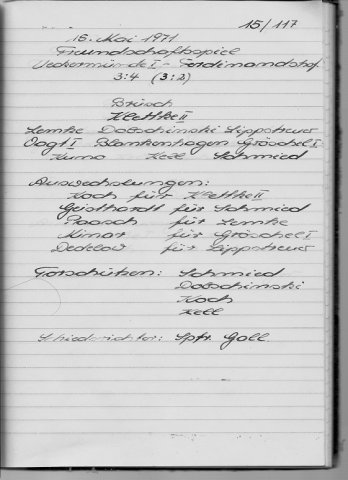 15/117
16. Mai 1971
Freundschaftsspiel
Ueckermünde I - Ferdinandshof
3:4 (3:2)
Brüsch
Klettke II
Lemke Dolschinski Lippstreuer
Vogt I Blankenhagen Gröschel I
Kumo Kell Schmied
Auswechslungen:
Koch für Klettke II
Geisthardt für Schmied
Paasch für Lemke
für Gröschel I
Dedelow für Lippstreuer
Torschützen: Schmied
Dolschinski
Koch
Kell
Schiedsrichter: Sptr. Goll